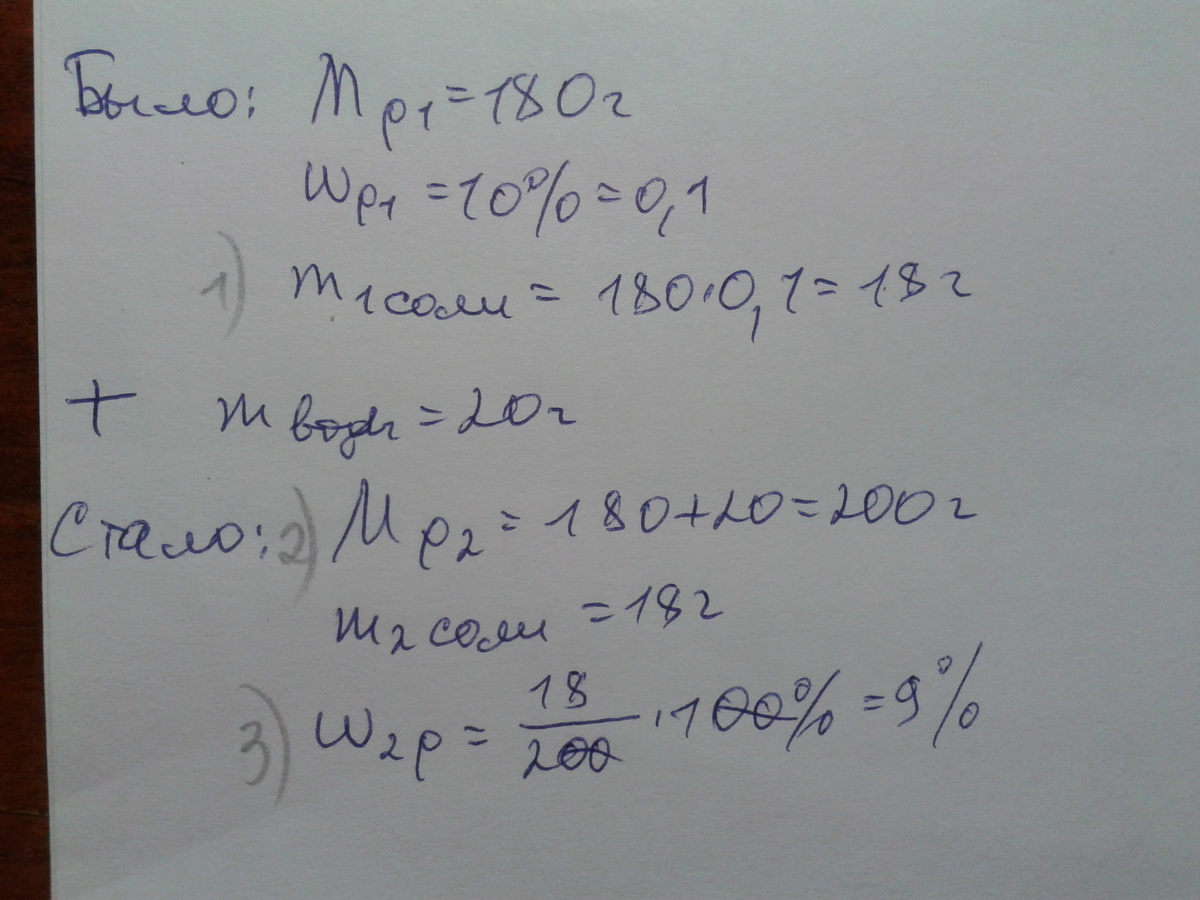 Было: Mр1 = 180г
wр1 = 10% = 0,1
1) m1соли = 180·0,1 = 18г
+ mводы = 20г
Стало: 2) Mр2 = 180+20 = 200г
m2соли = 18г
3) w2р = 18/200 · 100% = 9%